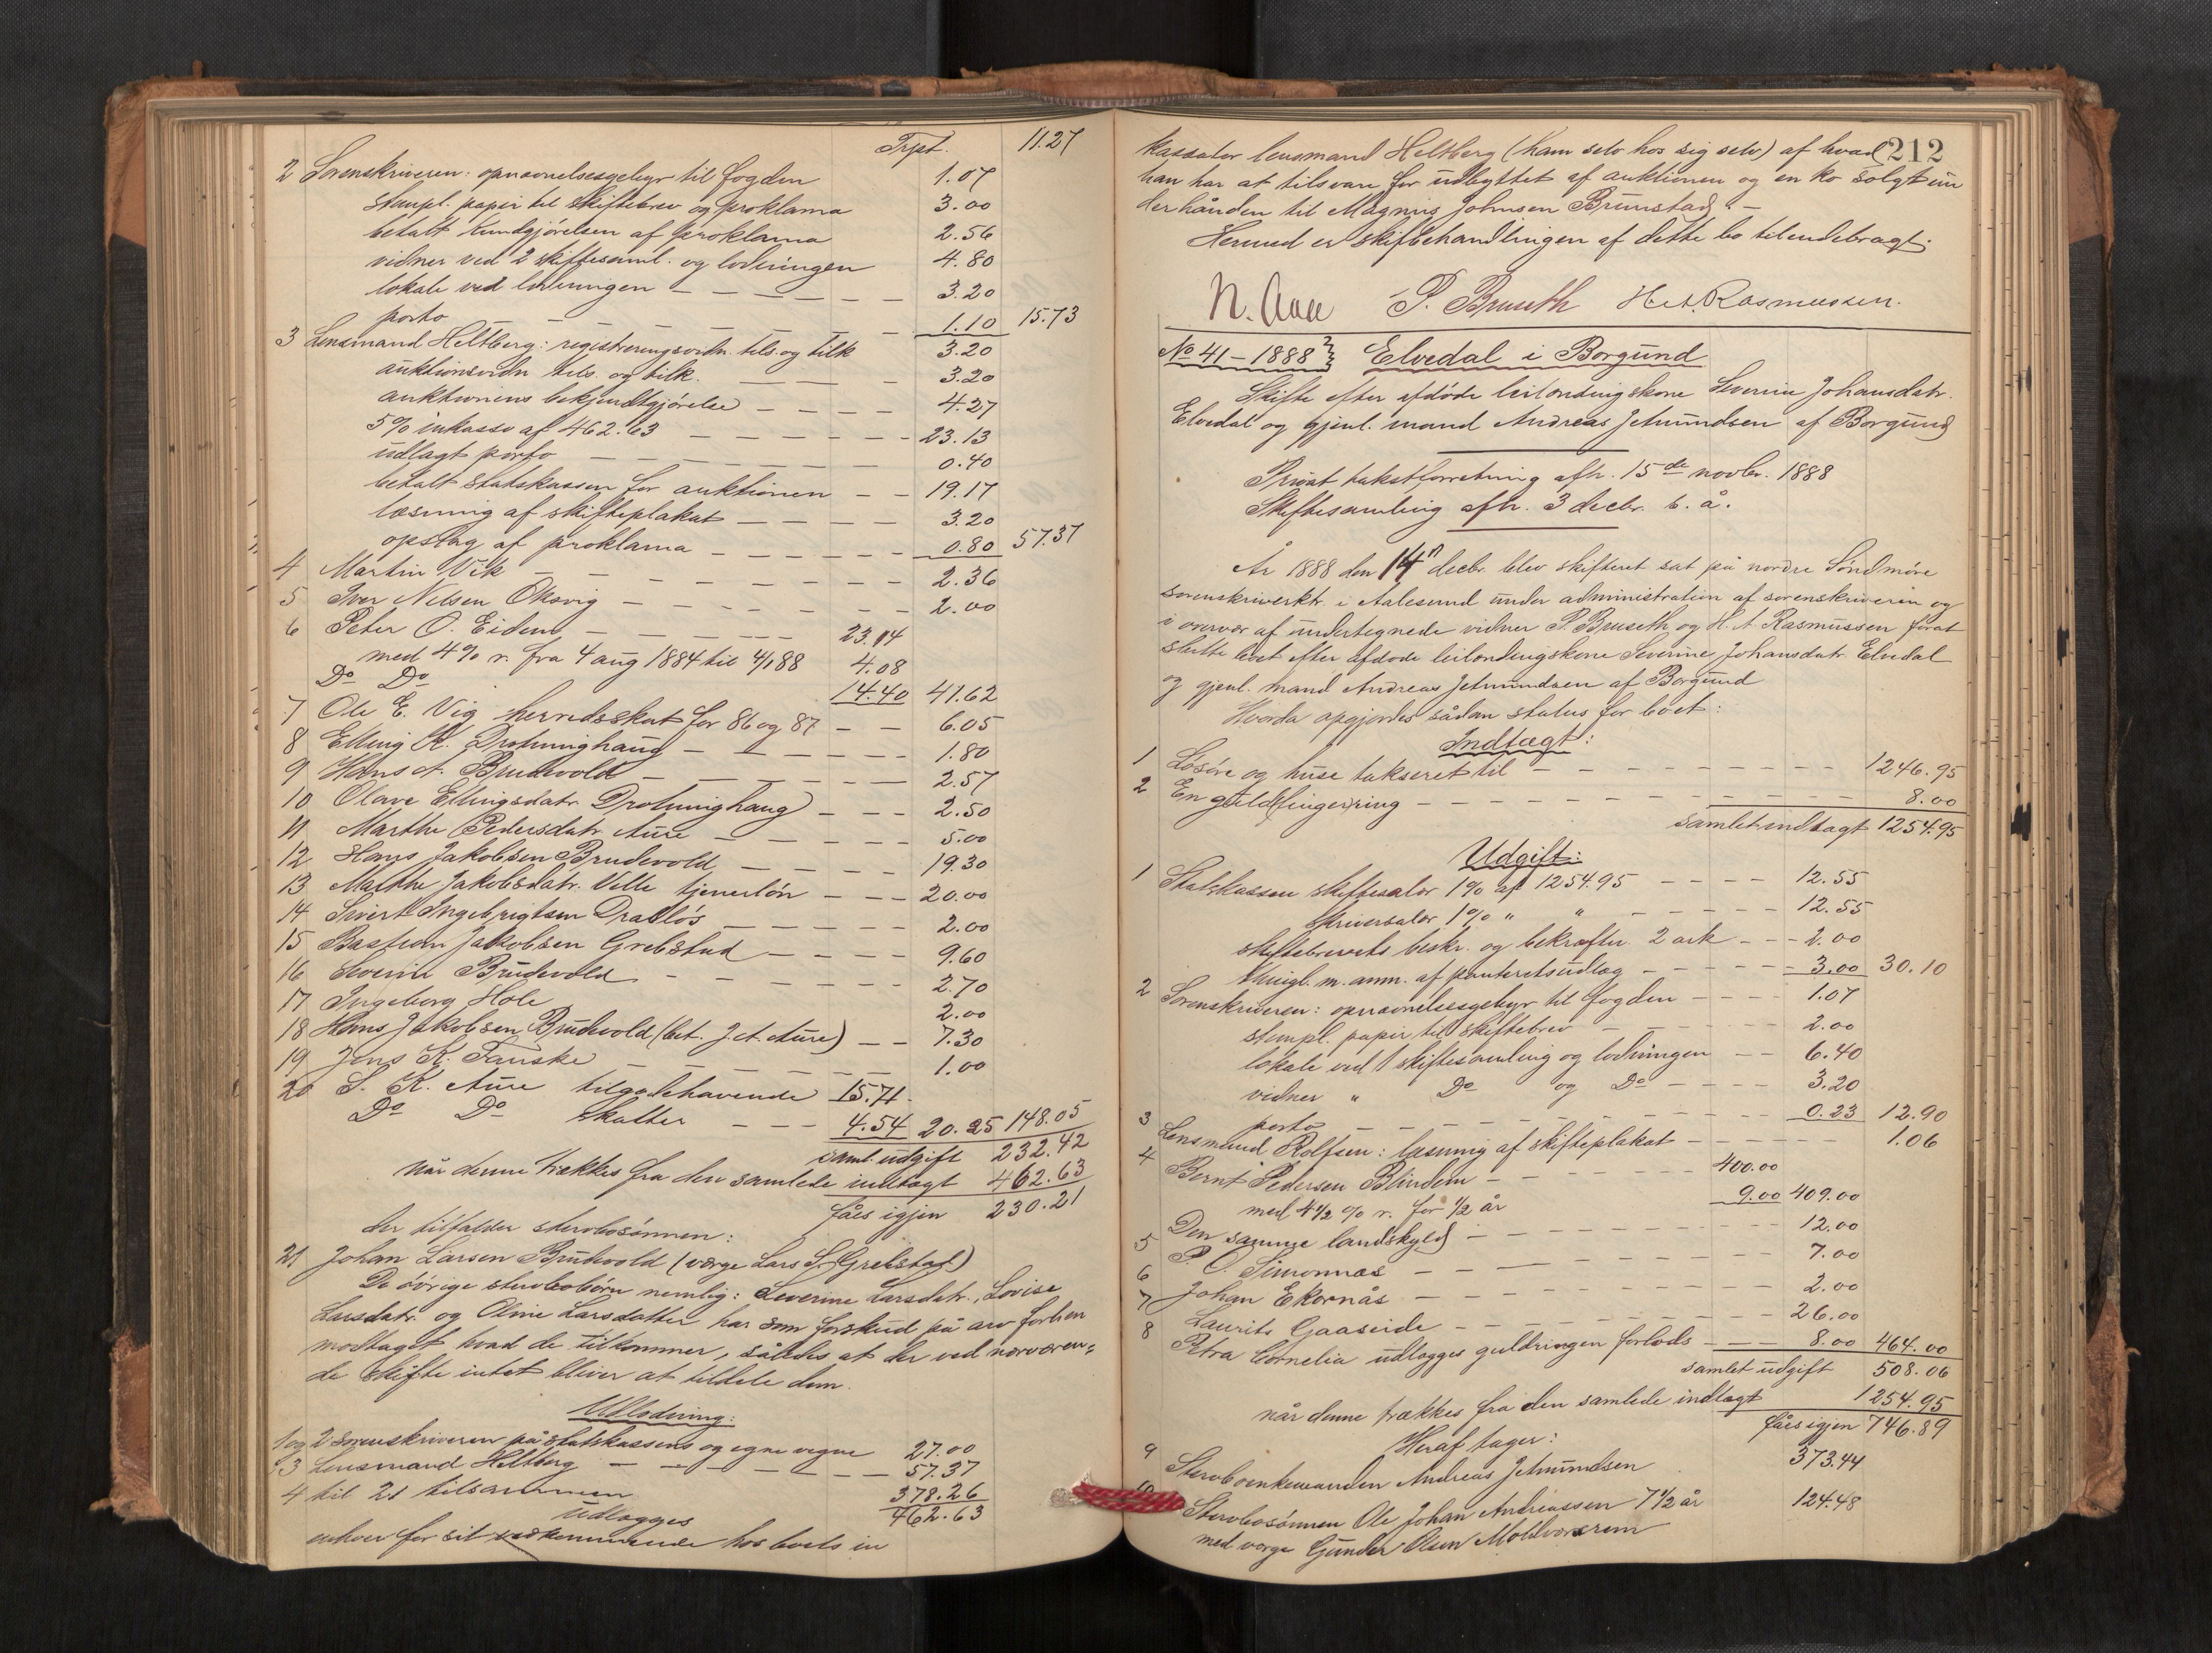 Trpt. 11.27
2 Sorenskriveren: opnævnelsesgebyr til fogden 1.07
stempl. papir til skiftebrev og proklama 3.00
betalt kundgjörelsen af proklama 2.56
vidner ved 2 skiftesaml. og lodningen 4.80
lokale ved lodningen 3.20
porto 1.10 15.73
3 Lensmand Heltberg: registreringsordn. tils. og tilk 3.20
auktionsordn tils. og tilk. 3.20
auktionens bekjendtgjörelse 4.27
5% inkasso af 462.63 23.13
udlagt porto 0.40
betalt statskassen for auktionen 19.17
læsning af skifteplakat 3.20
opslag af proklama 0.80 57.37
4 Martin Vik 2.36
5 Iver Nilsen Oksvig 2.00
6 Peter O. Eidem 23.14
med 4% r. fra 4 aug 1884 til 4/1 88 4.08
Do Do 14.40 41.62
7 Ole E. Vig herredsskat for 86 og 87 6.05
8 Elling K. Drotninghaug 1.80
9 Hans A. Brudevold 2.57
10 Olave Ellingsdatr Drotninghaug 2.50
11 Marthe Pedersdatr. Aure 5.00
12 Hans Jakobsen Brudevold 19.30
13 Marthe Jakobsdatr. Velle tjenerlön 20.00
14 Sivert Ingebrigtsen Drablös 2.00
15 Bastian Jakobsen Grebstad 9.60
16 Severin Brudevold 2.70
17 Ingeborg Hole 2.00
18 Hans Jakobsen Brudevold (bet. J. A. Aure) 7.30
19 Jens K. Fauske 1.00
20 S. K. Aure tilgodehavende 15.71
Do Do skatter 4.54 20.25 148.05
saml. udgift 232.42
når denne trækkes fra den samlede indtægt 462.63
fåes igjen 230.21
der tilfalder sterbosönnen:
21 Johan Larsen Brudevold (værge Lars S. Grebstad)
De övrige sterbobörn nemlig: Severine Larsdatr., Lovise
Larsdatr. og Oline Larsdatter har som forskud på arv forhen
modtaget hvad de tilkommer, således at der ved nærværen-
de skifte intet bliver at tildele dem.
Udlodning:
1 og 2 Sorenskriveren på statskassens og egne vegne 27.00
3 Lensmand Heltberg 57.37
4 til 21 tilsammen 378.26
udlægges 462.63
enhver for sit vedkommende hos boets in
212
kassator lensmand Heltberg (ham selv hos sig selv) af hvad
han har at tilsvare for udbyttet af auktionen og en ko solgt un
derhånden til Magnus Johnsen Brunstad. –
Hermed er skifbehandlingen af dette bo tilendebragt.
N. Aall P. Bruseth H. A. Rasmussen.
No 41 – 1888 Elvedal i Borgund
Skifte efter afdöde leilændingskone Severine Johansdatr.
Elvedal og gjenl. mand Andreas Jetmundsen af Borgund
Privat takstforretning afh. 15de novbr. 1888
Skiftesamling afh. 3 decbr. s. å.
År 1888 den 14n decbr. blev skifteret sat på nordre Söndmöre
sorenskriverktr. i Aalesund under administration af sorenskriveren og
i overvær af undertegnede vidner P. Bruseth og H. A. Rasmussen forat
slutte boet efter afdöde leilændingskone Severine Johansdatr Elvedal
og gjenl. mand Andreas Jetmundsen af Borgund
Hvorda opgjordes sådan status for boet:
Indtægt:
1 Lösöre og huse takseret til 1246.95
2 En guld(finger)ring 8.00
samlet indtægt 1254.95
Udgift:
1 Statskassen skiftesalær 1% af 1254.95 12.55
skriversalær 1% " " 12.55
skiftebrevets beskr. og bekræftn. 2 ark 2.00
thingl. m. anm. af panteretsudlæg 3.00 30.10
2 Sorenskriveren: opnævnelsesgebyr til fogden 1.07
stempl. papir til skiftebrev 2.00
lokale ved 1 skiftesamling og lodningen 6.40
vidner " Do og Do 3.20
porto 0.23 12.90
3 Lensmand Rolfsen: læsning af skifteplakat 1.06
4 Bernt Pedersen Blindem 400.00
med 4½ % r. for ½ år 9.00 409.00
Den samme landskyld 12.00
5 P. O. Simonnæs 7.00
6 Johan Ekornås 2.00
7 Laurits Gaaseide 26.00
8 Petra Cornelia udlægges guldringen forlods 8.00 464.00
samlet udgift 508.06
når denne trækkes fra den samlede indtægt 1254.95
fåes igjen 746.89
Heraf tager:
9 Sterboenkemanden Andreas Jetmundsen 373.44
10 Sterbosönnen Ole Johan Andreassen 7½ år 124.48
med værge Gunder Olsen Moldværsrem